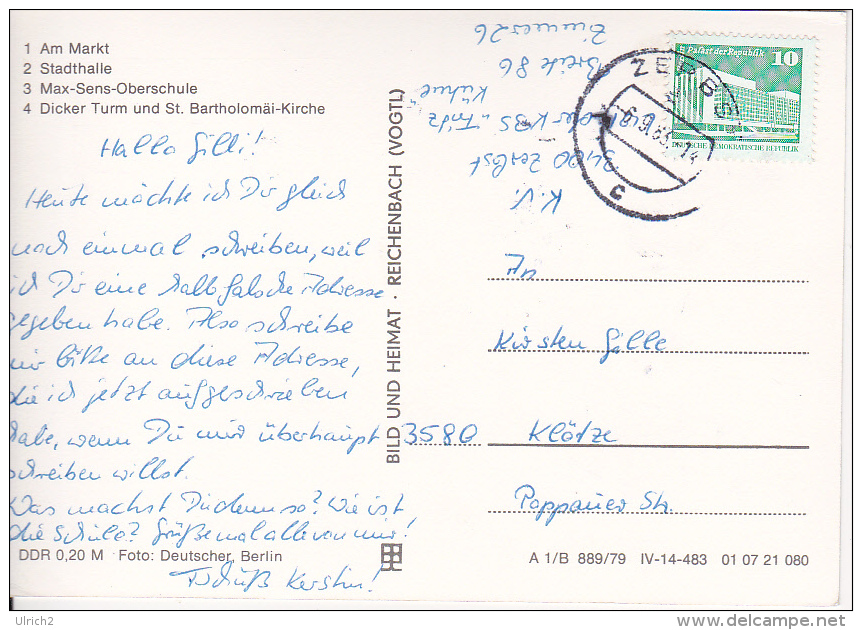 1 Am Markt
2 Stadthalle
3 Max-Sens-Oberschule
4 Dicker Turm und St. Bartholomäi-Kirche
Hallo Gilli!
Heute möchte ich Dir gleich
noch einmal schreiben, weil
ich Dir eine halbfalsche Adresse
gegeben habe. Also schreibe
mir bitte an diese Adresse,
die ich jetzt aufgeschrieben
habe, wenn Du mir überhaupt
schreiben willst.
Was machst Du denn so? Wie ist
die Schule? Grüße mal alle von mir!
Tschüß Kerstin!
DDR 0,20 M Foto: Deutscher, Berlin
BILD UND HEIMAT · REICHENBACH (VOGTL)
K.V.
3400 Zerbst
KBS "Fritz
Kühne"
Breite 86
Zimmer 26
ZERBST
C
Palast der Republik
10
DEUTSCHE DEMOKRATISCHE REPUBLIK
An
Kirsten Gille
3580 Klötze
Poppauer Str.
A 1/B 889/79 IV-14-483 01 07 21 080
Ulrich2
delcampe.net